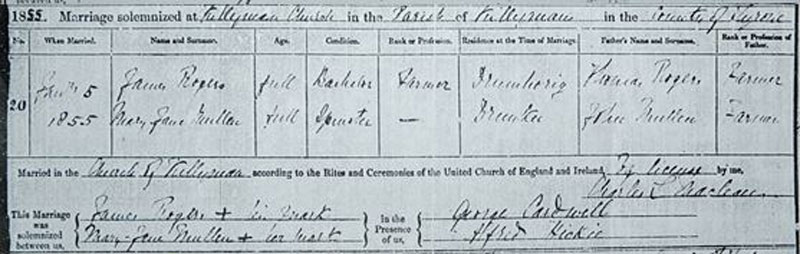 1855. Marriage solemnized at Killyman Church in the Parish of Killyman in the County of Tyrone
No. When Married. Name and Surname. Age. Condition. Rank or Profession. Residence at the Time of Marriage. Father's Name and Surname. Rank or Profession of Father.
5 James Rogers full Bachelor Farmer Thomas Rogers Farmer
20
1855 Mary Jane Mullen full Spinster — John Mullen Farmer
Married in the Church of Killyman according to the Rites and Ceremonies of the United Church of England and Ireland, By license by me,
Charles L Maclean
This Marriage was solemnized between us, James Rogers + his mark
Mary Jane Mullen + her mark
In the Presence of us, George Cardwell
Alfred Hickie